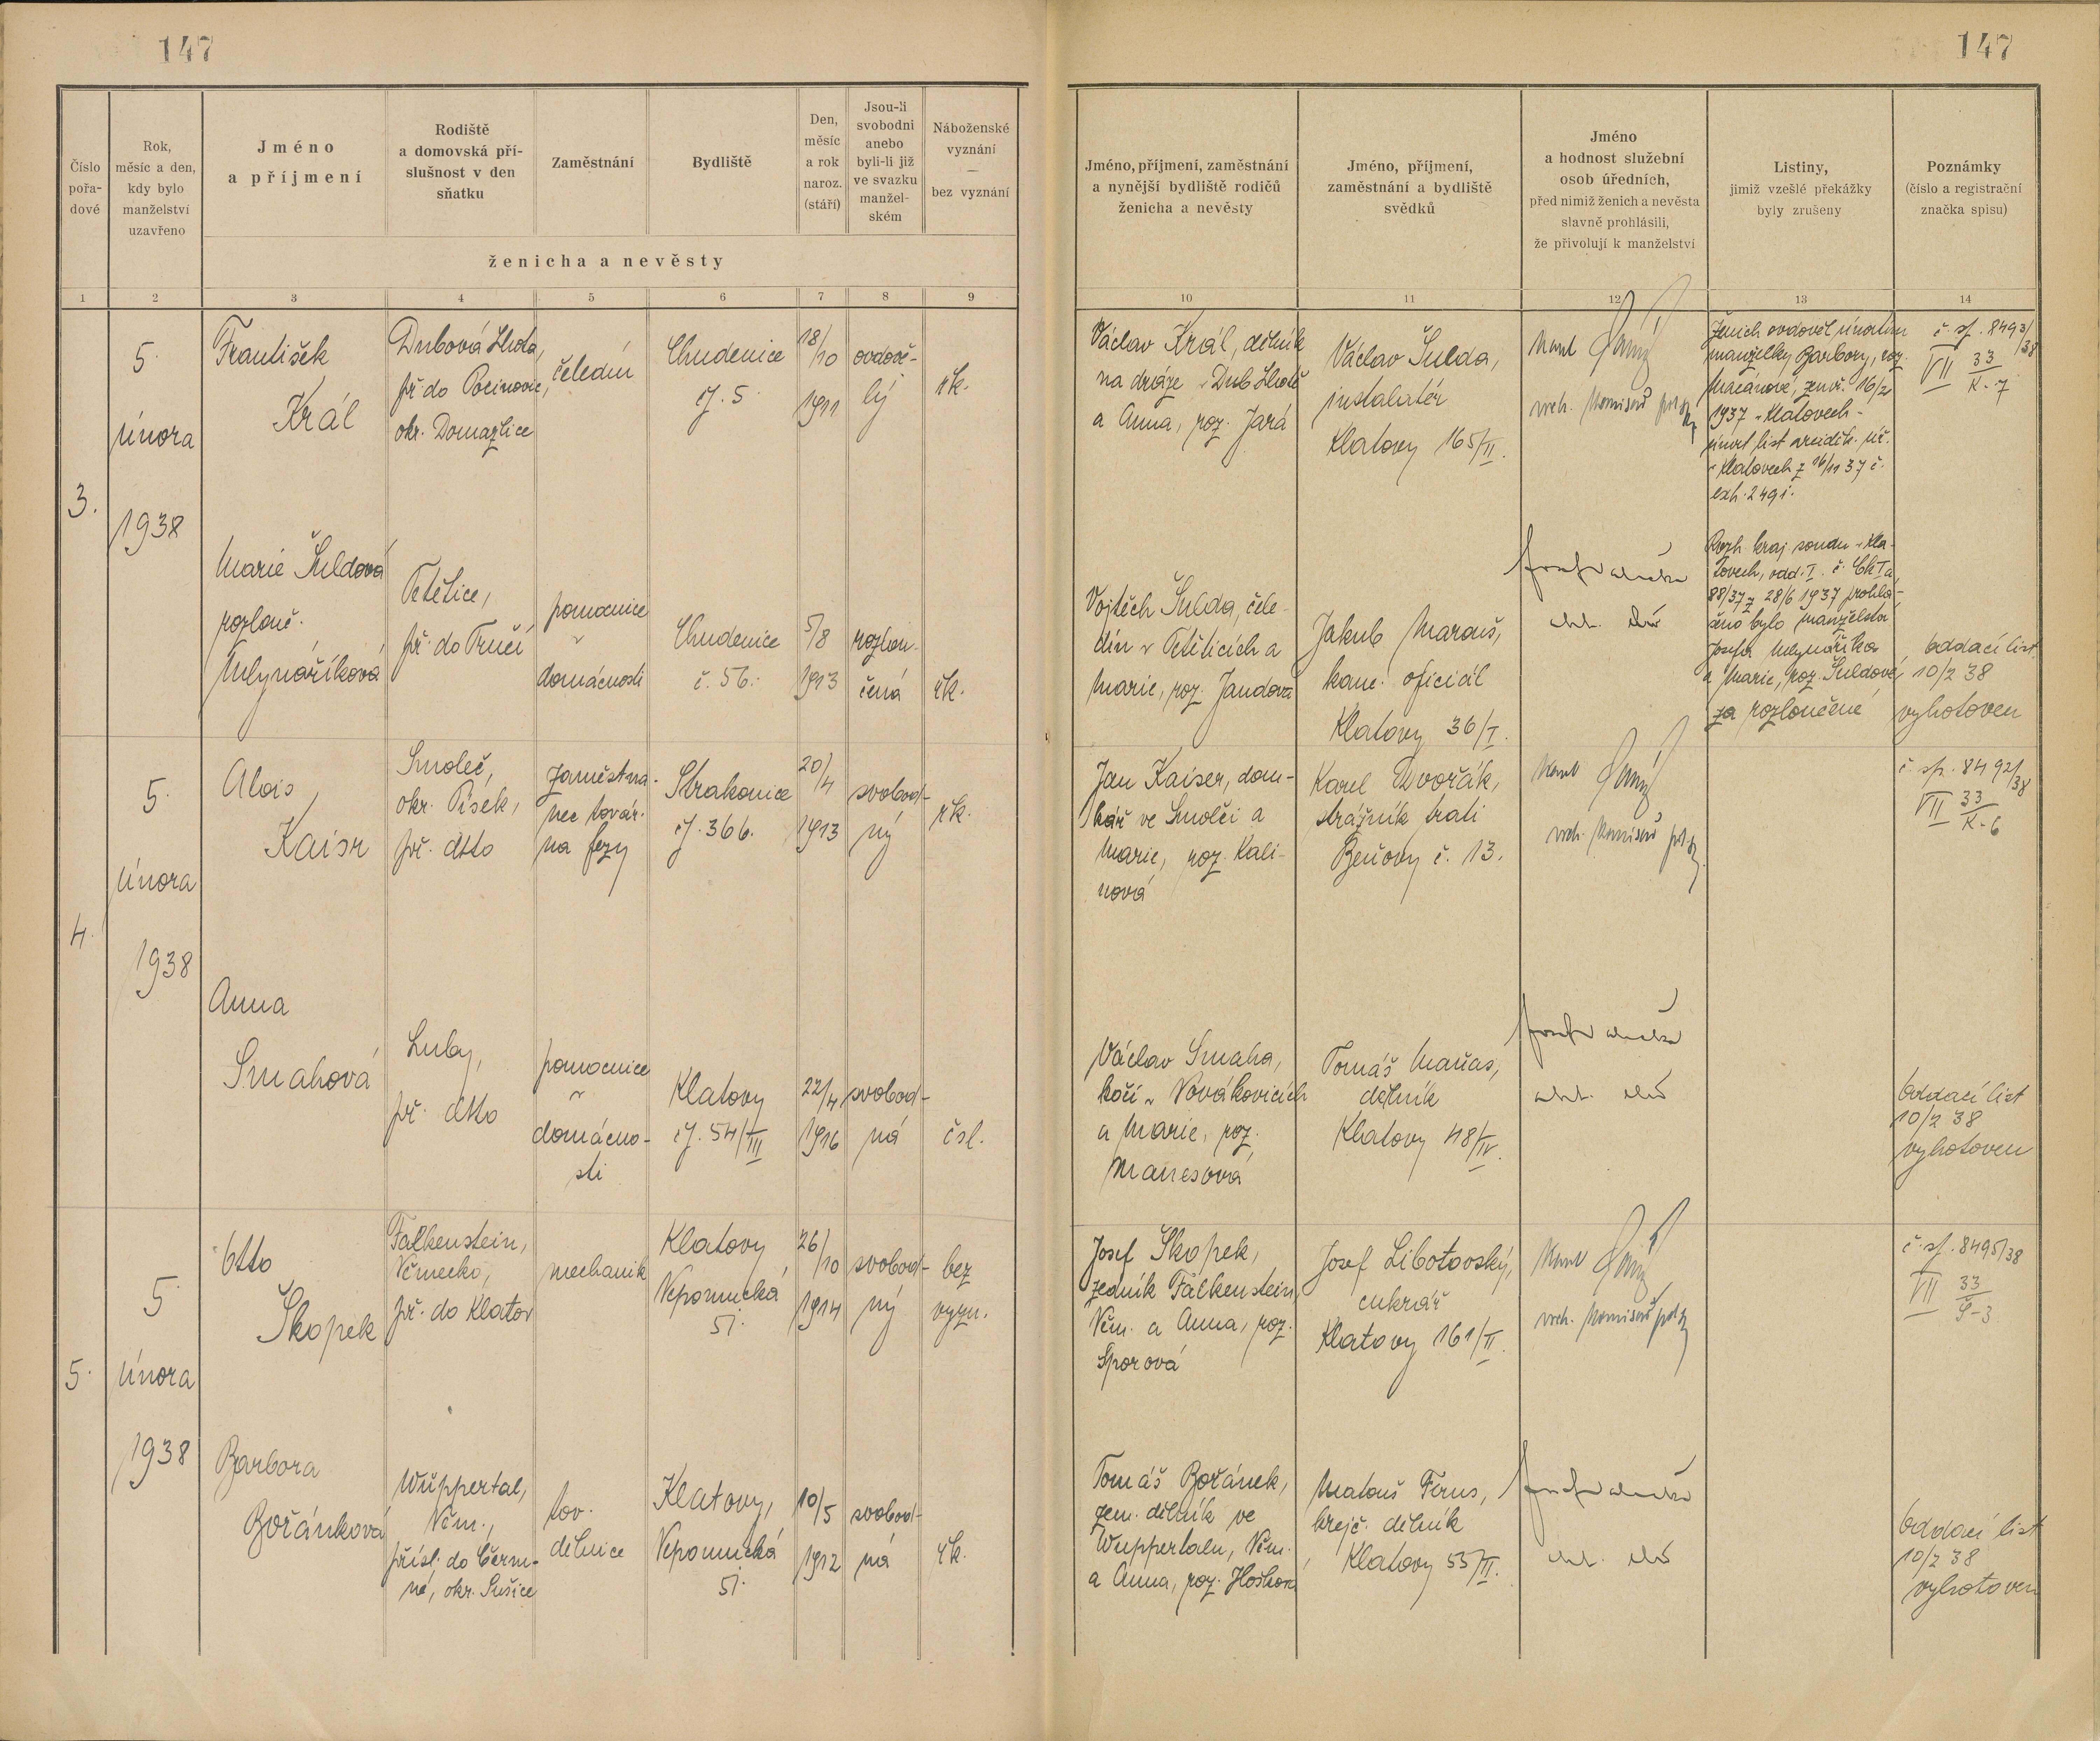 147
147
Číslo pořa-dové
Rok, měsíc a den, kdy bylo manželství uzavřeno
Jméno a příjmení
Rodiště a domovská pří-slušnost v den sňatku
Zaměstnání
Bydliště
Den, měsíc a rok naroz. (stáří)
Jsou-li svobodni anebo byli-li již ve svazku manžel-ském
Náboženské vyznání — bez vyznání
ženicha a nevěsty
Jméno, příjmení, zaměstnání a nynější bydliště rodičů ženicha a nevěsty
Jméno, příjmení, zaměstnání a bydliště svědků
Jméno a hodnost služební osob úředních, před nimiž ženich a nevěsta slavně prohlásili, že přivolují k manželství
Listiny, jimiž vzešlé překážky byly zrušeny
Poznámky (číslo a registrační značka spisu)
1 2 3 4 5 6 7 8 9 10 11 12 13 14
3.
5.
února
1938
František
Král
Dubová Lhota,
př. do Pocinovic,
okr. Domažlice
čeledín
Chudenice
čj. 5.
18/10
1911
ovdově-
lý
řk.
Václav Král, dělník
na dráze v Dub. Lhotě
a Anna, roz. Jará
Václav Šulda,
instalatér
Klatovy 165/II.
vrch. komisař
Ženich ovdověl úmrtím
manželky Barbory, roz.
zemř. 16/2
1937 v Klatovech -
úmrt. list arciděk. úř.
v Klatovech z 16/11 37 č.
exh. 2491.
č. sp. 8493/38
VII 33/K-7
Marie Šuldová
rozlouč.
Mlynáříková
Tetětice,
př. do Tručí
pomocnice
v
domácnosti
Chudenice
č. 56.
5/8
1913
rozlou-
čená
řk.
Vojtěch Šulda, čele-
dín v Tetěticích a
Marie, roz. Jandová
Jakub Marouš,
kanc. oficiál
Klatovy 36/I.
Rozh. kraj. soudu v Kla-
tovech, odd. I. č. Ck I a
88/37 z 28/6 1937 prohlá-
šeno bylo manželství
Josefa Mlynáříka
a Marie, roz. Šuldové,
za rozloučené
oddací list
10/2 38
vyhotoven
4.
5.
února
1938
Alois
Kaisr
Smoleč,
okr. Písek,
př. dtto
zaměstna-
nec továr-
na fezy
Strakonice
čj. 366.
20/4
1913
svobod-
ný
řk.
Jan Kaiser, dom-
kář ve Smolči a
Marie, roz. Kali-
nová
Karel Dvořák,
strážník trati
Beňovy č. 13.
vrch. komisař
č. sp. 8492/38
VII 33/K-6
Anna
Smahová
Luby,
př. dtto
pomocnice
v
domácno-
sti
Klatovy
čj. 54/III
22/4
1916
svobod-
ná
čsl.
Václav Smaha,
kočí v Novákovicích
a Marie, roz.
Manesová
Tomáš Maňas,
dělník
Klatovy 48/IV.
oddací list
10/2 38
vyhotoven
5.
5.
února
1938
Otto
Škopek
Falkenstein,
Německo,
př. do Klatov
mechanik
Klatovy,
Nepomucká
51.
26/10
1914
svobod-
ný
bez
vyzn.
Josef Škopek,
zedník Falkenstein,
Něm. a Anna, roz.
Sporová
Josef Libotovský,
cukrář
Klatovy 161/II.
vrch. komisař
č. sp. 8495/38
VII 33/Š-3
Barbora
Bořánková
Wuppertal,
Něm.,
přísl. do Čerm-
né, okr. Sušice
tov.
dělnice
Klatovy,
Nepomucká
51.
10/5
1912
svobod-
ná
řk.
Tomáš Bořánek,
zem. dělník ve
Wuppertalu, Něm.
a Anna, roz.
Matouš
krejč. dělník
Klatovy 55/III.
oddací list
10/2 38
vyhotoven